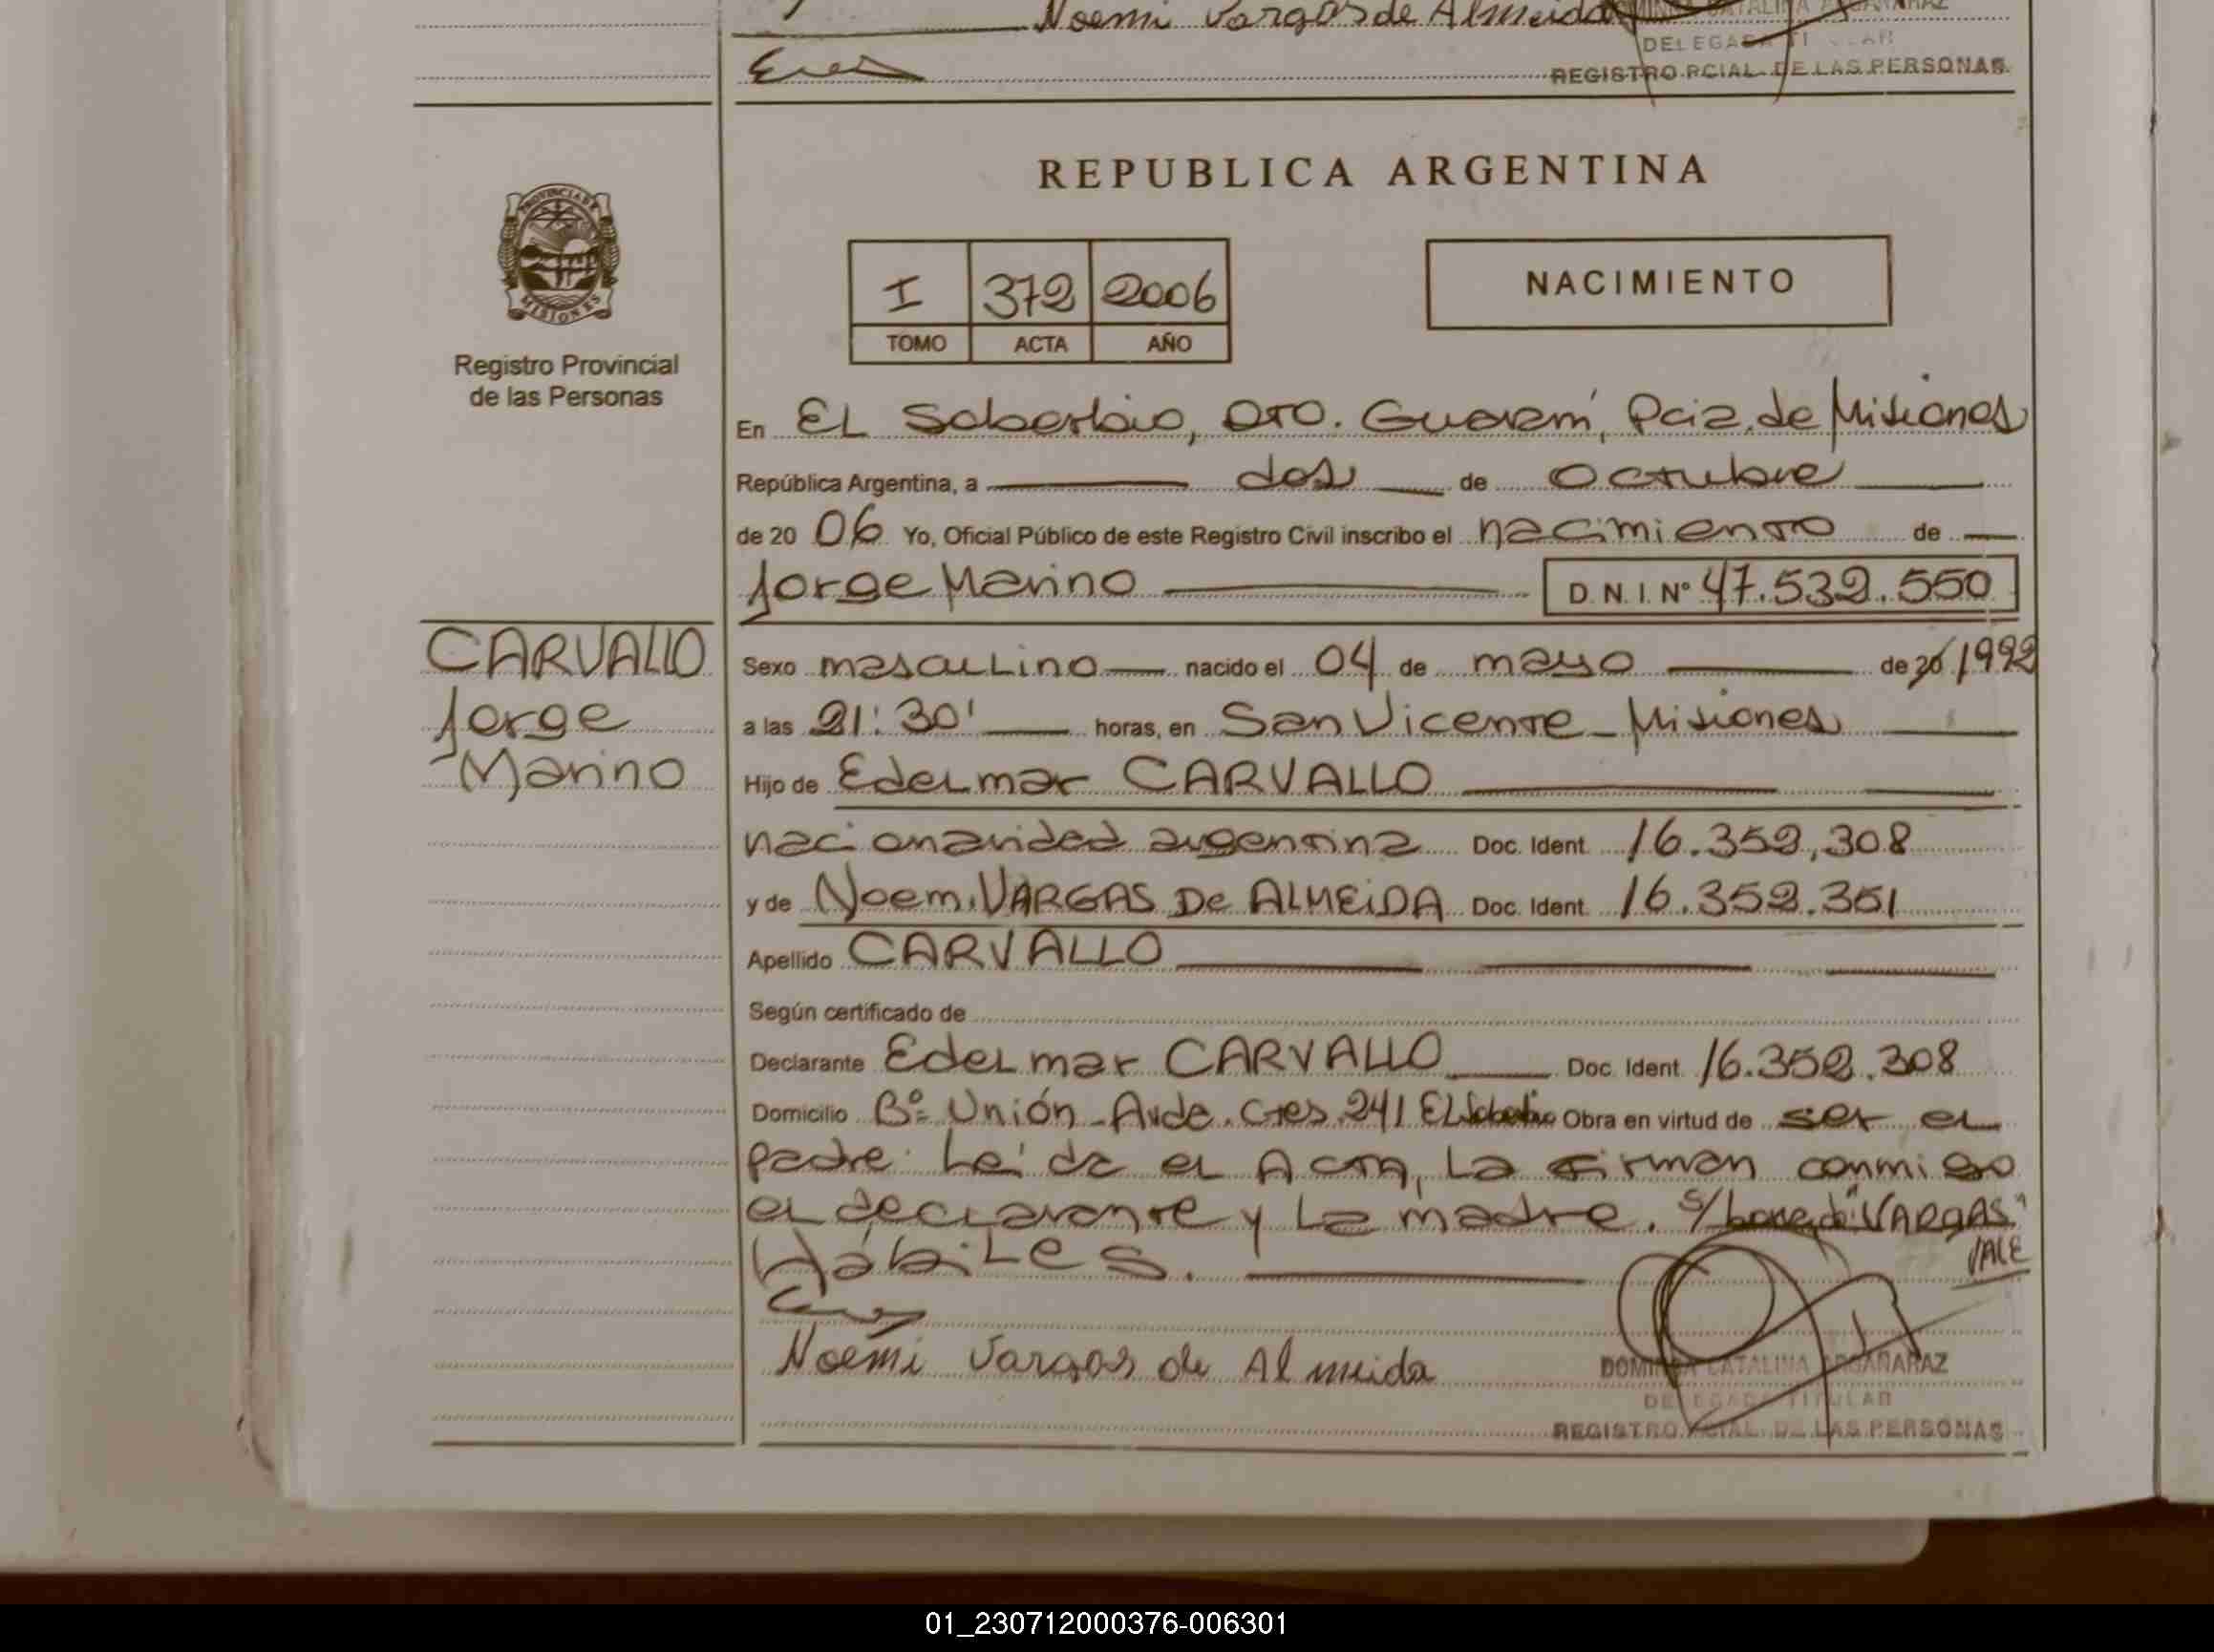 Noemi Vargas de Almeida
DELEGADA TITULAR
REGISTRO PCIAL. DE LAS PERSONAS
REPUBLICA ARGENTINA
PROVINCIA DE MISIONES
Registro Provincial
de las Personas
I 372 2006
TOMO ACTA AÑO
NACIMIENTO
En EL Soberbio, Dto. Guaraní, Pcia. de Misiones
República Argentina, a dos de Octubre
de 20 06 Yo, Oficial Público de este Registro Civil inscribo el nacimiento de
Jorge Marino D.N.I. Nº 47.532.550
CARVALLO
Jorge
Marino
Sexo masculino nacido el 04 de mayo de 20 1992
a las 21:30' horas, en San Vicente - Misiones
Hijo de Edelmar CARVALLO
nacionalidad argentina Doc. Ident. 16.352.308
y de Noemi VARGAS De ALMEIDA Doc. Ident. 16.352.351
Apellido CARVALLO
Según certificado de
Declarante Edelmar CARVALLO Doc. Ident. 16.352.308
Domicilio Bº Unión - Avda. Cres. 241 EL Soberbio Obra en virtud de ser el
padre. Leída el Acta, la firman conmigo
el declarante y la madre. S/ "VARGAS"
VALE
Hábiles.
Noemi Vargas de Almeida
DOMINGA CATALINA ARGAÑARAZ
DELEGADA TITULAR
REGISTRO PCIAL. DE LAS PERSONAS
01_230712000376-006301